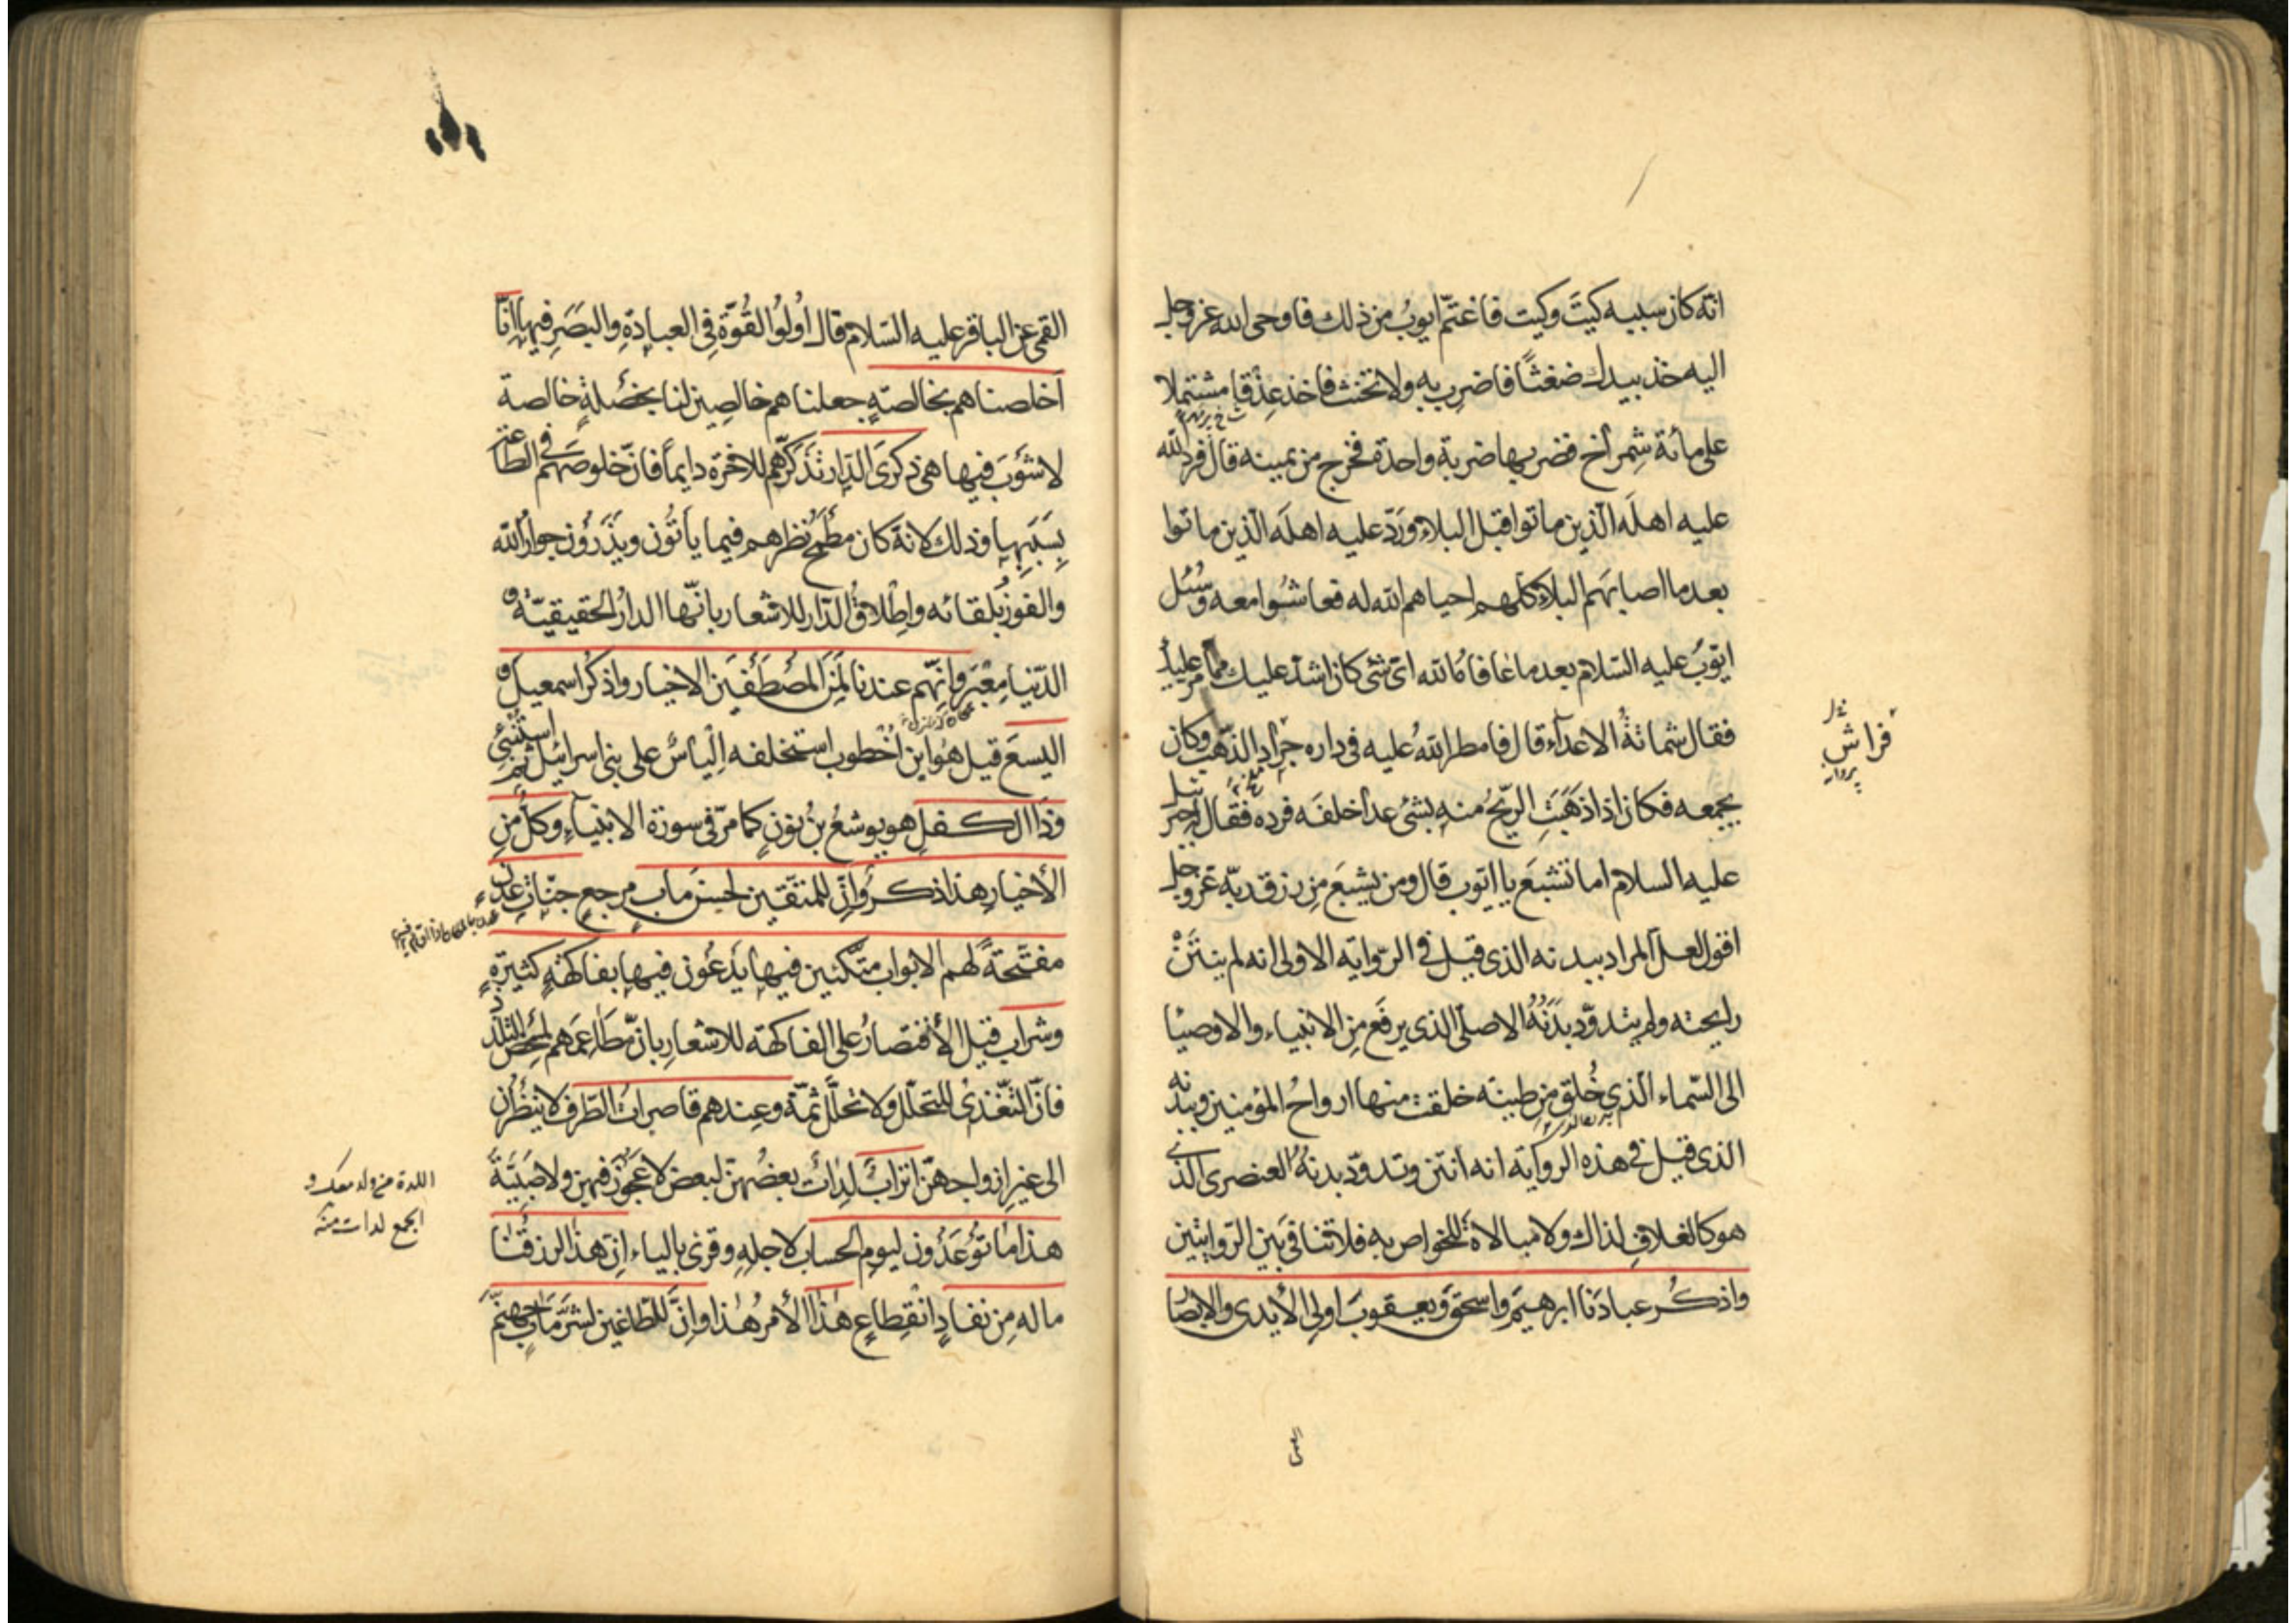 انّه كان سببه كيتَ وكيت فاغتمّ ايوبُ من ذلك فاوحى الله عزوجل
اليه خذ بيدك ضغثًا فاضرب به ولا تحنث فاخذ عِذْقا مشتملا
على مائة شِمراخ فضربها ضربة واحدة فخرج من يمينه قال فردّ الله
عليه اهلَه الّذين ماتوا قبل البلاء ورَدّ عليه اهلَه الّذين ماتوا
بعد ما اصابهَم البلاء كلّهم احياهم الله له فعاشُوا معه وسُئل
ايّوبُ عليه السّلام بعد ما عافاهُ الله اىّ شئ كان اشدّ عليك ممّا مرّ عليك
فقال شماتةُ الاعداء قال فامطر اللهُ عليه فى داره جراد الذّهب وكان
يجمعه فكان اذا ذهَبَتِ الرّيحُ منه بشئ عدا خلفَه فردّه فقال له جبرئيل
عليه السلام اما تشبعَ يا ايّوب قال ومن يشبعَ مِن رزق ربّه عزوجل
اقول لعلّ المراد ببدنه الذى قيل فى الرّواية الاولى انه لم ينتَنْ
رايحته ولم يتدوّد بدَنُهُ الاصلىّ الذى يرفَع مِن الانبياء والاوصيا
الى السّماء الّذى خُلق من طينته خلقت منها ارواحُ المؤمنين وببدنه
الذى قيل فى هذه الرواية انه انتن وتدوّد بدنهُ العنصرى الذى
هو كالغلافِ لذاك ولا مبالاة للخواص به فلا تنافى بَين الرّوايتين
واذكُر عبادَنا ابرهيمَ واسحقَ ويعقوبَ اولِى الأيدى والابصا
فراش
پروانه
القمى
القمى عن الباقر عليه السّلام قال اُولُوا القُوّة فِى العبادةِ والبصَرِ فيها انّا
اخلصناهم بخالصةٍ جعلناهم خالصِين لنا بخَصْلةٍ خالصة
لا شَوْبَ فيها هى ذكرَى الدّار تذكّرهم للاخرة دايماً فانّ خلوصَهم فى الطّاعة
بِسَبَبِها وذلك لانّه كان مطْمَح نظرهم فيما ياتُون ويَذرُون جوارُ الله
والفوزُ بلقائه واِطْلاقُ الدّار للاشعار بانّها الدارُ الحقيقيّةُ و
الدّنيا مِعْبَر وانّهم عندنا لمِنَ المصُطفَيَن الاخيار واذكُر اسمعيلَ و
اليسعَ قيل هُو ابن اُخْطوب استخلفه اِلْياسُ على بنى اسرائيل ثم استُنْبِئَ
وذَا الكفلِ هو يوشعُ بنُ نونٍ كما مرّ فى سورة الانبياء وكلٌّ مِن
الأخيارِ هذا ذكر وَاِنّ للمتّقين لحسنَ مابٍ مرجعٍ جنّاتِ عدْنٍ
مفتّحةً لهم الابواب متّكئين فيها يدْعُون فيها بفاكهةٍ كثيرةٍ
وشرابٍ قيل الأقتصارُ على الفاكهة للاشعارِ بانّ مطَاعمَهم لمحْضِ التلذّذ
فانّ التّغذّىْ للتحلّل ولا تحلّل ثمّة وعِندهم قاصراتُ الطّرف لا ينظُرن
الى غيرِ ازواجهنّ اترابٌ لِداتٌ بعضُهنّ لبعض لا عَجُوزَ فيهن ولا صَبيّةَ
هذا ماتوُعَدُون ليوم الحساب لاجلِهِ وقرئ بالياء اِنّ هذا لرزقُنا
ماله مِن نفادٍ انقِطاعٍ هٰذا الأمرُ هٰذا وَاِنّ للطّاغين لشرَّ مآبٍ جهنّمَ
اللدة من ولد معك و
الجمع لدات منه